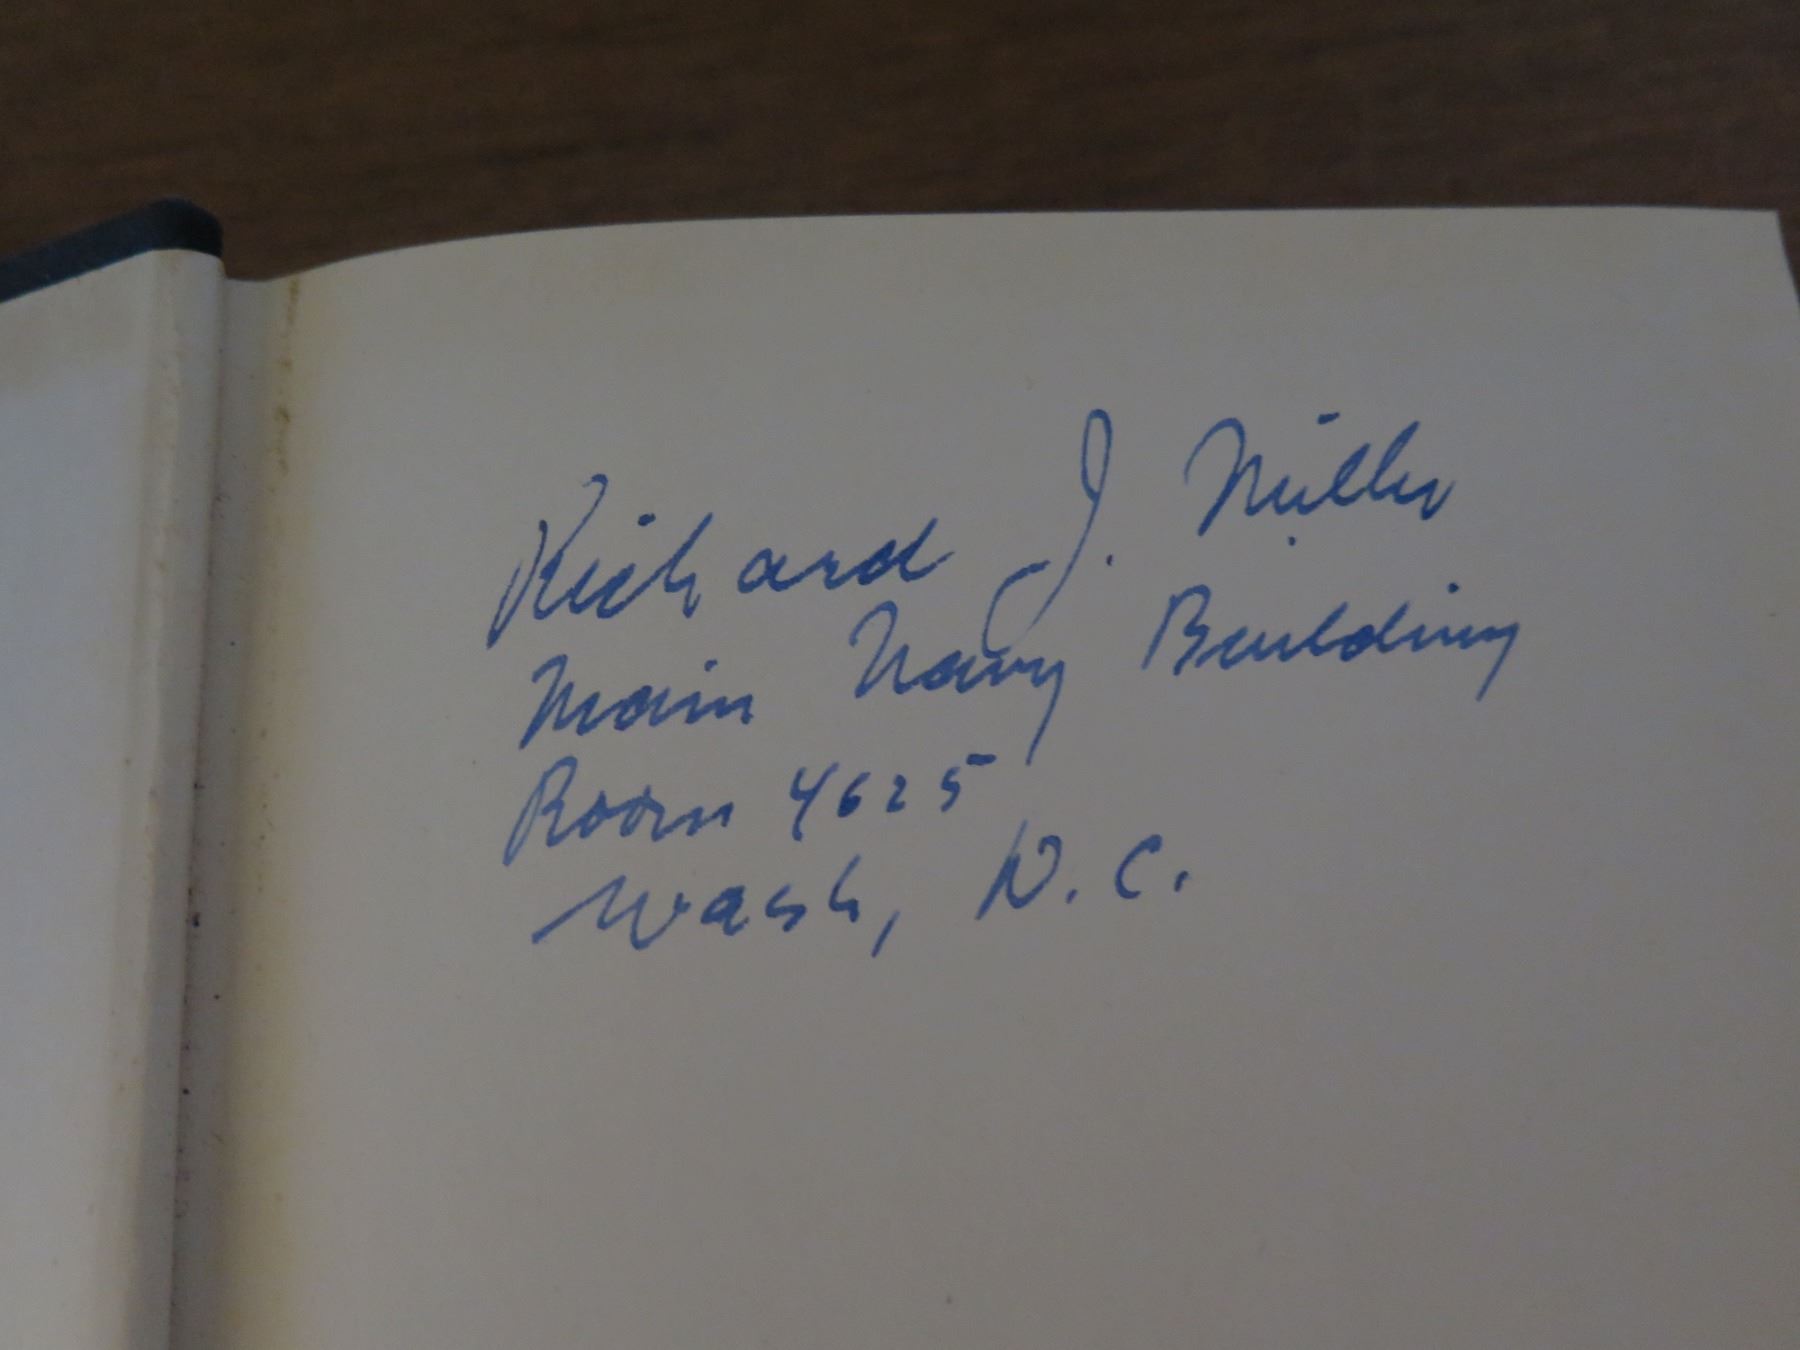 Richard J. Miller
Main Navy Building
Room 4625
Wash, D.C.